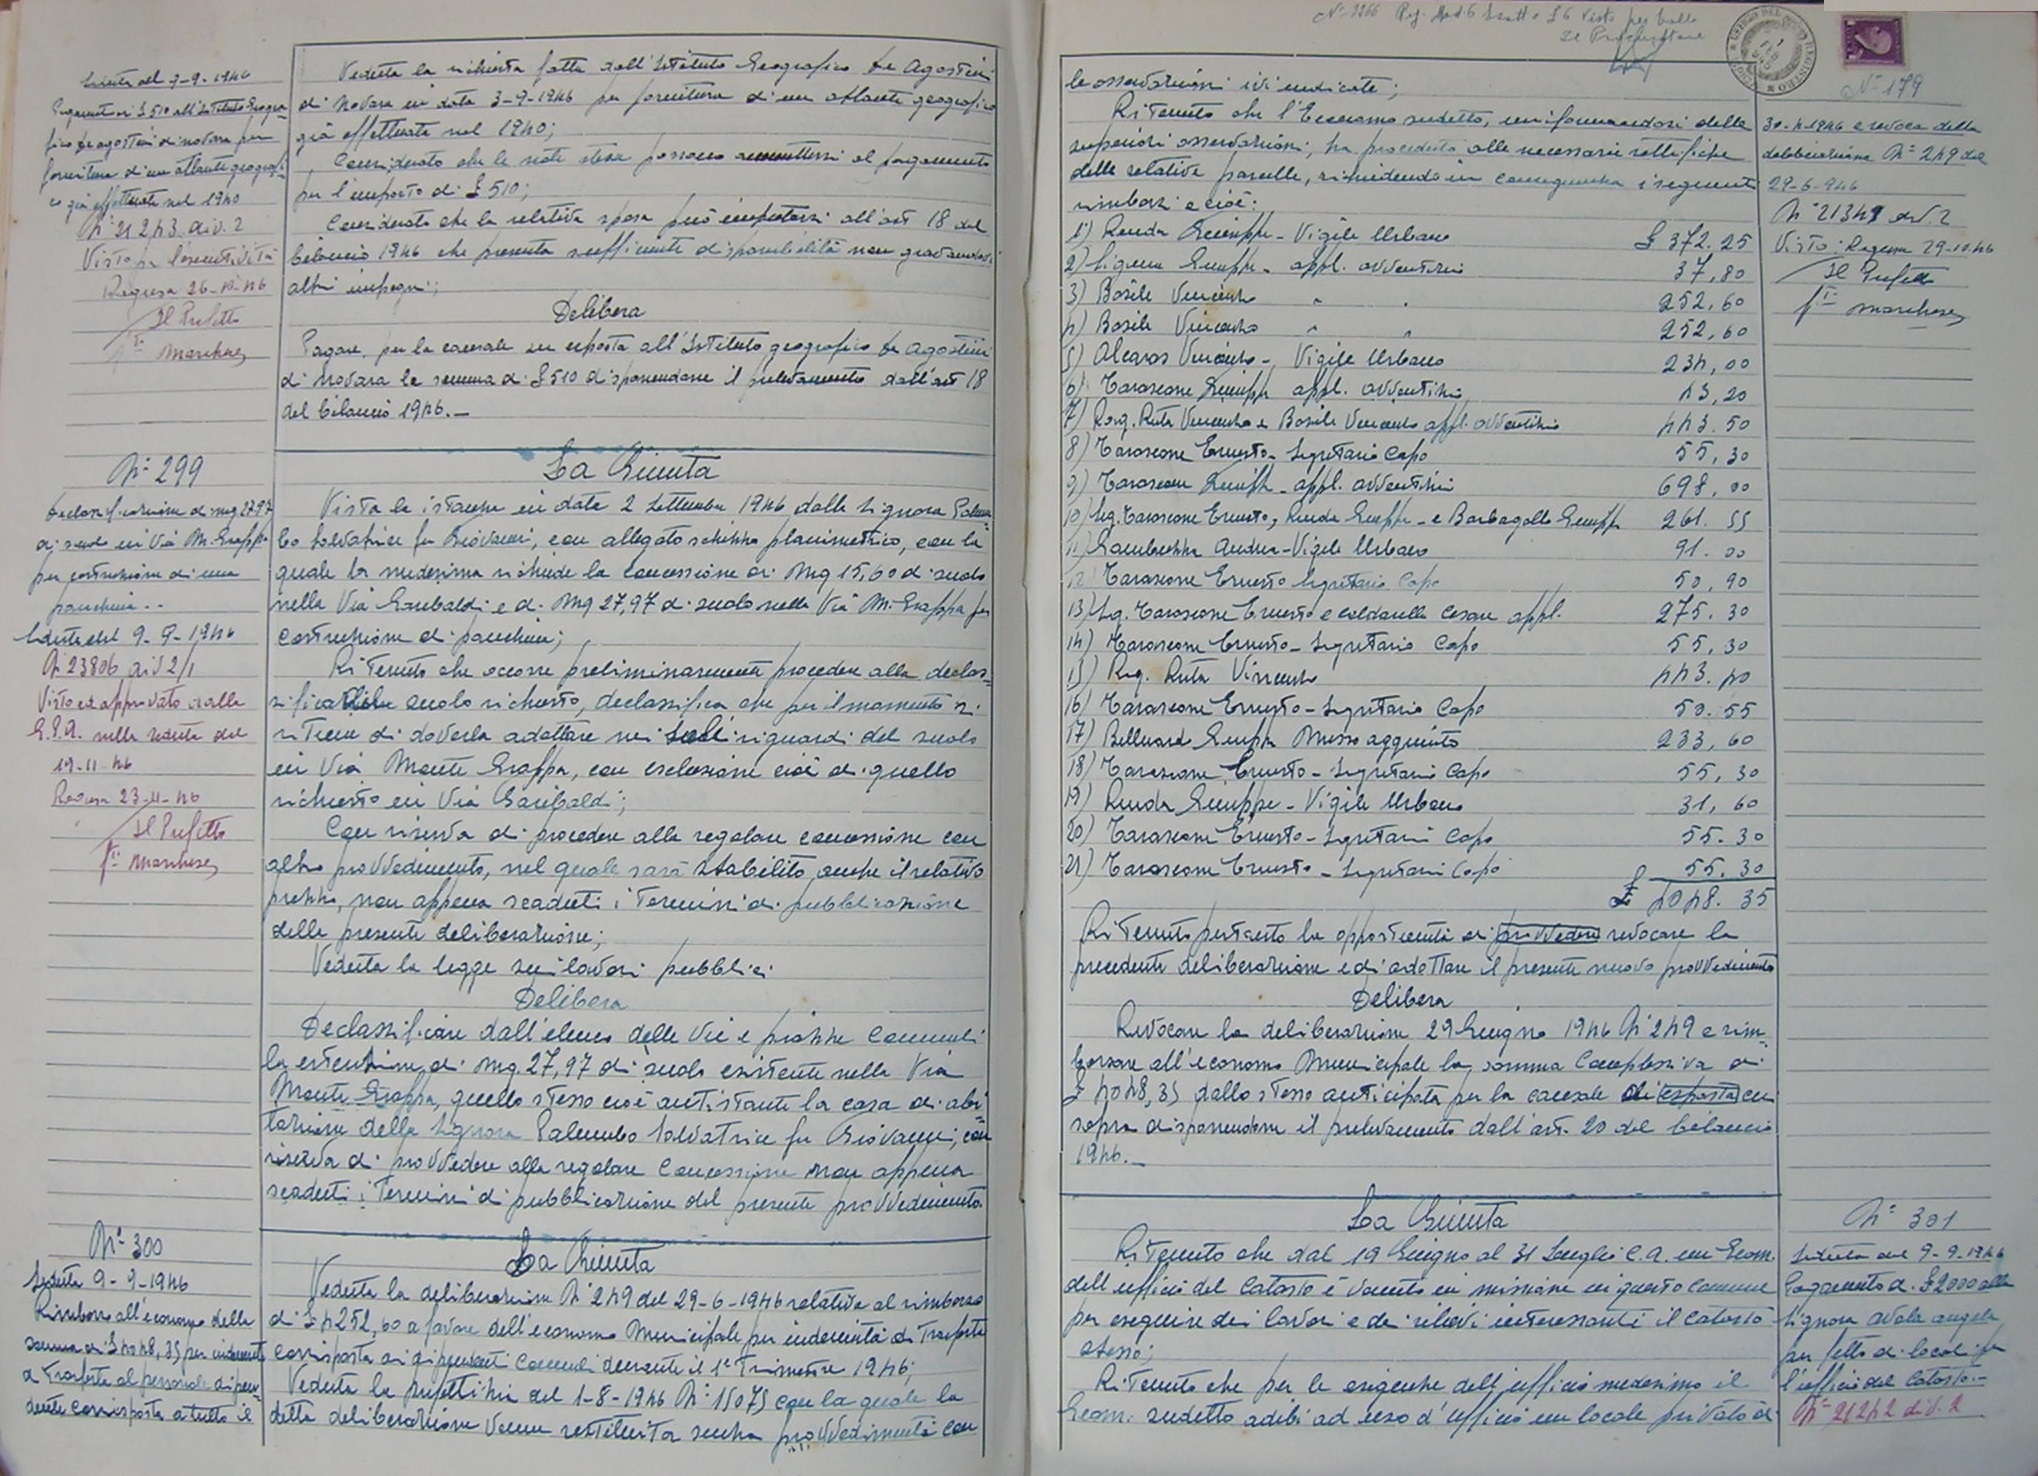 Seduta del 7-9-1946
Pagamento di £ 510 all'Istituto Geogra-
fico De Agostini di Novara per
fornitura di un atlante geografi-
co già effettuata nel 1940
N° 21243 div. 2
Visto per l'esecutività
Ragusa 26-10-46
Il Prefetto
Veduta la richiesta fatta dall'Istituto Geografico De Agostini
di Novara in data 3-9-1946 per fornitura di un atlante geografico
già effettuata nel 1940;
Considerato che la nota stessa possono ammettersi al pagamento
per l'importo di £ 510;
Considerato che la relativa spesa può imputarsi all'art 18 del
bilancio 1946 che presenta sufficiente disponibilità non gravandovi
altri impegni;
Delibera
Pagare, per la causale su esposta all'Istituto geografico De Agostini
di Novara la somma di £ 510 disponendone il prelevamento dall'art 18
del bilancio 1946.
N° 299
Declassificazione di mq 27.97
di suolo in Via M. Grappa
per costruzione di una
panchina..
Seduta del 9-9-1946
N° 23806 div 2/1
Visto ed approvato dalla
G.P.A. nella seduta del
19-11-46
Ragusa 23-11-46
Il Prefetto
La Giunta
Vista la istanza in data 2 Settembre 1946 della Signora Palum-
bo Salvatrice fu Giovanni, con allegato schizzo planimetrico, con la
quale la medesima richiede la concessione di Mq 15,60 di suolo
nella Via Garibaldi e di Mq 27,97 di suolo nella Via M. Grappa per
costruzione di panchina;
Ritenuto che occorre preliminarmente procedere alla declas-
sifica del suolo richiesto, declassifica che per il momento si
ritiene di doverla adottare nei soli riguardi del suolo
in Via Monte Grappa, con esclusione cioè di quello
richiesto in Via Garibaldi;
Con riserva di procedere alla regolare concessione con
altro provvedimento, nel quale sarà stabilito anche il relativo
prezzo, non appena scaduti i termini di pubblicazione
della presente deliberazione;
Veduta la legge sui lavori pubblici
Delibera
Declassificare dall'elenco delle Vie e piazze Comunali
la estenzione di mq. 27,97 di suolo esistente nella Via
Monte Grappa, quello stesso cioè antistante la casa di abi-
tazione della Signora Palumbo Salvatrice fu Giovanni, con
riserva di provvedere alla regolare Concessione non appena
scaduti i termini di pubblicazione del presente provvedimento.
N° 300
Seduta 9-9-1946
Rimborso all'economo della
somma di £ 4048,35 per indennità
di trasferta al personale dipen-
dente corrisposta a tutto il
La Giunta
Veduta la deliberazione N° 249 del 29-6-1946 relativa al rimborso
di £ 4252,60 a favore dell'economo Municipale per indennità di trasferta
corrisposta ai dipendenti Comunali durante il 1° Trimestre 1946;
Veduta la prefettizia del 1-8-1946 N° 15075 con la quale la
detta deliberazione venne restituita senza provvedimenti con
Il Procuratore
N° 179
le osservazioni ivi indicate;
Ritenuto che l'Economo sudetto, uniformandosi alle
superiori osservazioni, ha proceduto alle necessarie rettifiche
delle relative parcelle, rimediando in conseguenza i seguenti
rimborsi e cioè:
1) Renda Giuseppe - Vigile Urbano £ 372.25
2) Giuseppe - appl. avventizio 37,80
3) Basile Vincenzo " " 252,60
4) Basile Vincenzo " " 252,60
5) Vincenzo - Vigile Urbano 234,00
6) Tarascone Giuseppe appl. avventizio 43,20
7) Rag. Ruta Vincenzo e Basile Vincenzo appl. avventizio 443.50
8) Tarascone Ernesto - Segretario Capo 55,30
9) Tarascone Giuseppe - appl. avventizio 698,00
10) Sig. Tarascone Ernesto, Renda Giuseppe - e Barbagallo Giuseppe 261.55
11) Andrea - Vigile Urbano 91.00
12) Tarascone Ernesto Segretario Capo 50,90
13) Sig. Tarascone Ernesto e Caldarella Cesare appl. 275.30
14) Tarascone Ernesto - Segretario Capo 55,30
15) Rag. Ruta Vincenzo 443.40
16) Tarascone Ernesto - Segretario Capo 50.55
17) Giuseppe Messo aggiunto 233,60
18) Tarascone Ernesto - Segretario Capo 55,30
19) Renda Giuseppe - Vigile Urbano 31,60
20) Tarascone Ernesto - Segretario Capo 55.30
21) Tarascone Ernesto - Segretario Capo 55.30
£ 4048.35
Ritenuto pertanto la opportunità di provvedere revocare la
precedente deliberazione e di adottare il presente nuovo provvedimento
Delibera
Revocare la deliberazione 29 Giugno 1946 N° 249 e rim-
borsare all'economo Municipale la somma Complessiva di
£ 4048,35 dallo stesso anticipata per la causale di esposta in
sopra disponendone il prelevamento dall'art. 20 del bilancio
1946.
30-4-1946 e revoca della
deliberazione N° 249 del
29-6-946
N° 21341 div. 2
Visto: Ragusa 29-10-46
Il Prefetto
La Giunta
Ritenuto che dal 19 Giugno al 31 Luglio c.a. un Geom.
dell'ufficio del Catasto è venuto in missione in questo comune
per eseguire dei lavori e dei rilievi interessanti il catasto
stesso;
Ritenuto che per le esigenze dell'ufficio medesimo il
Geom. sudetto adibì ad uso d'ufficio un locale privato di
N° 301
Seduta del 9-9-1946
Pagamento di £ 2000 alla
Signora Avola Angela
per fitto di locali per
l'ufficio del Catasto.-
N° 21242 div. 2